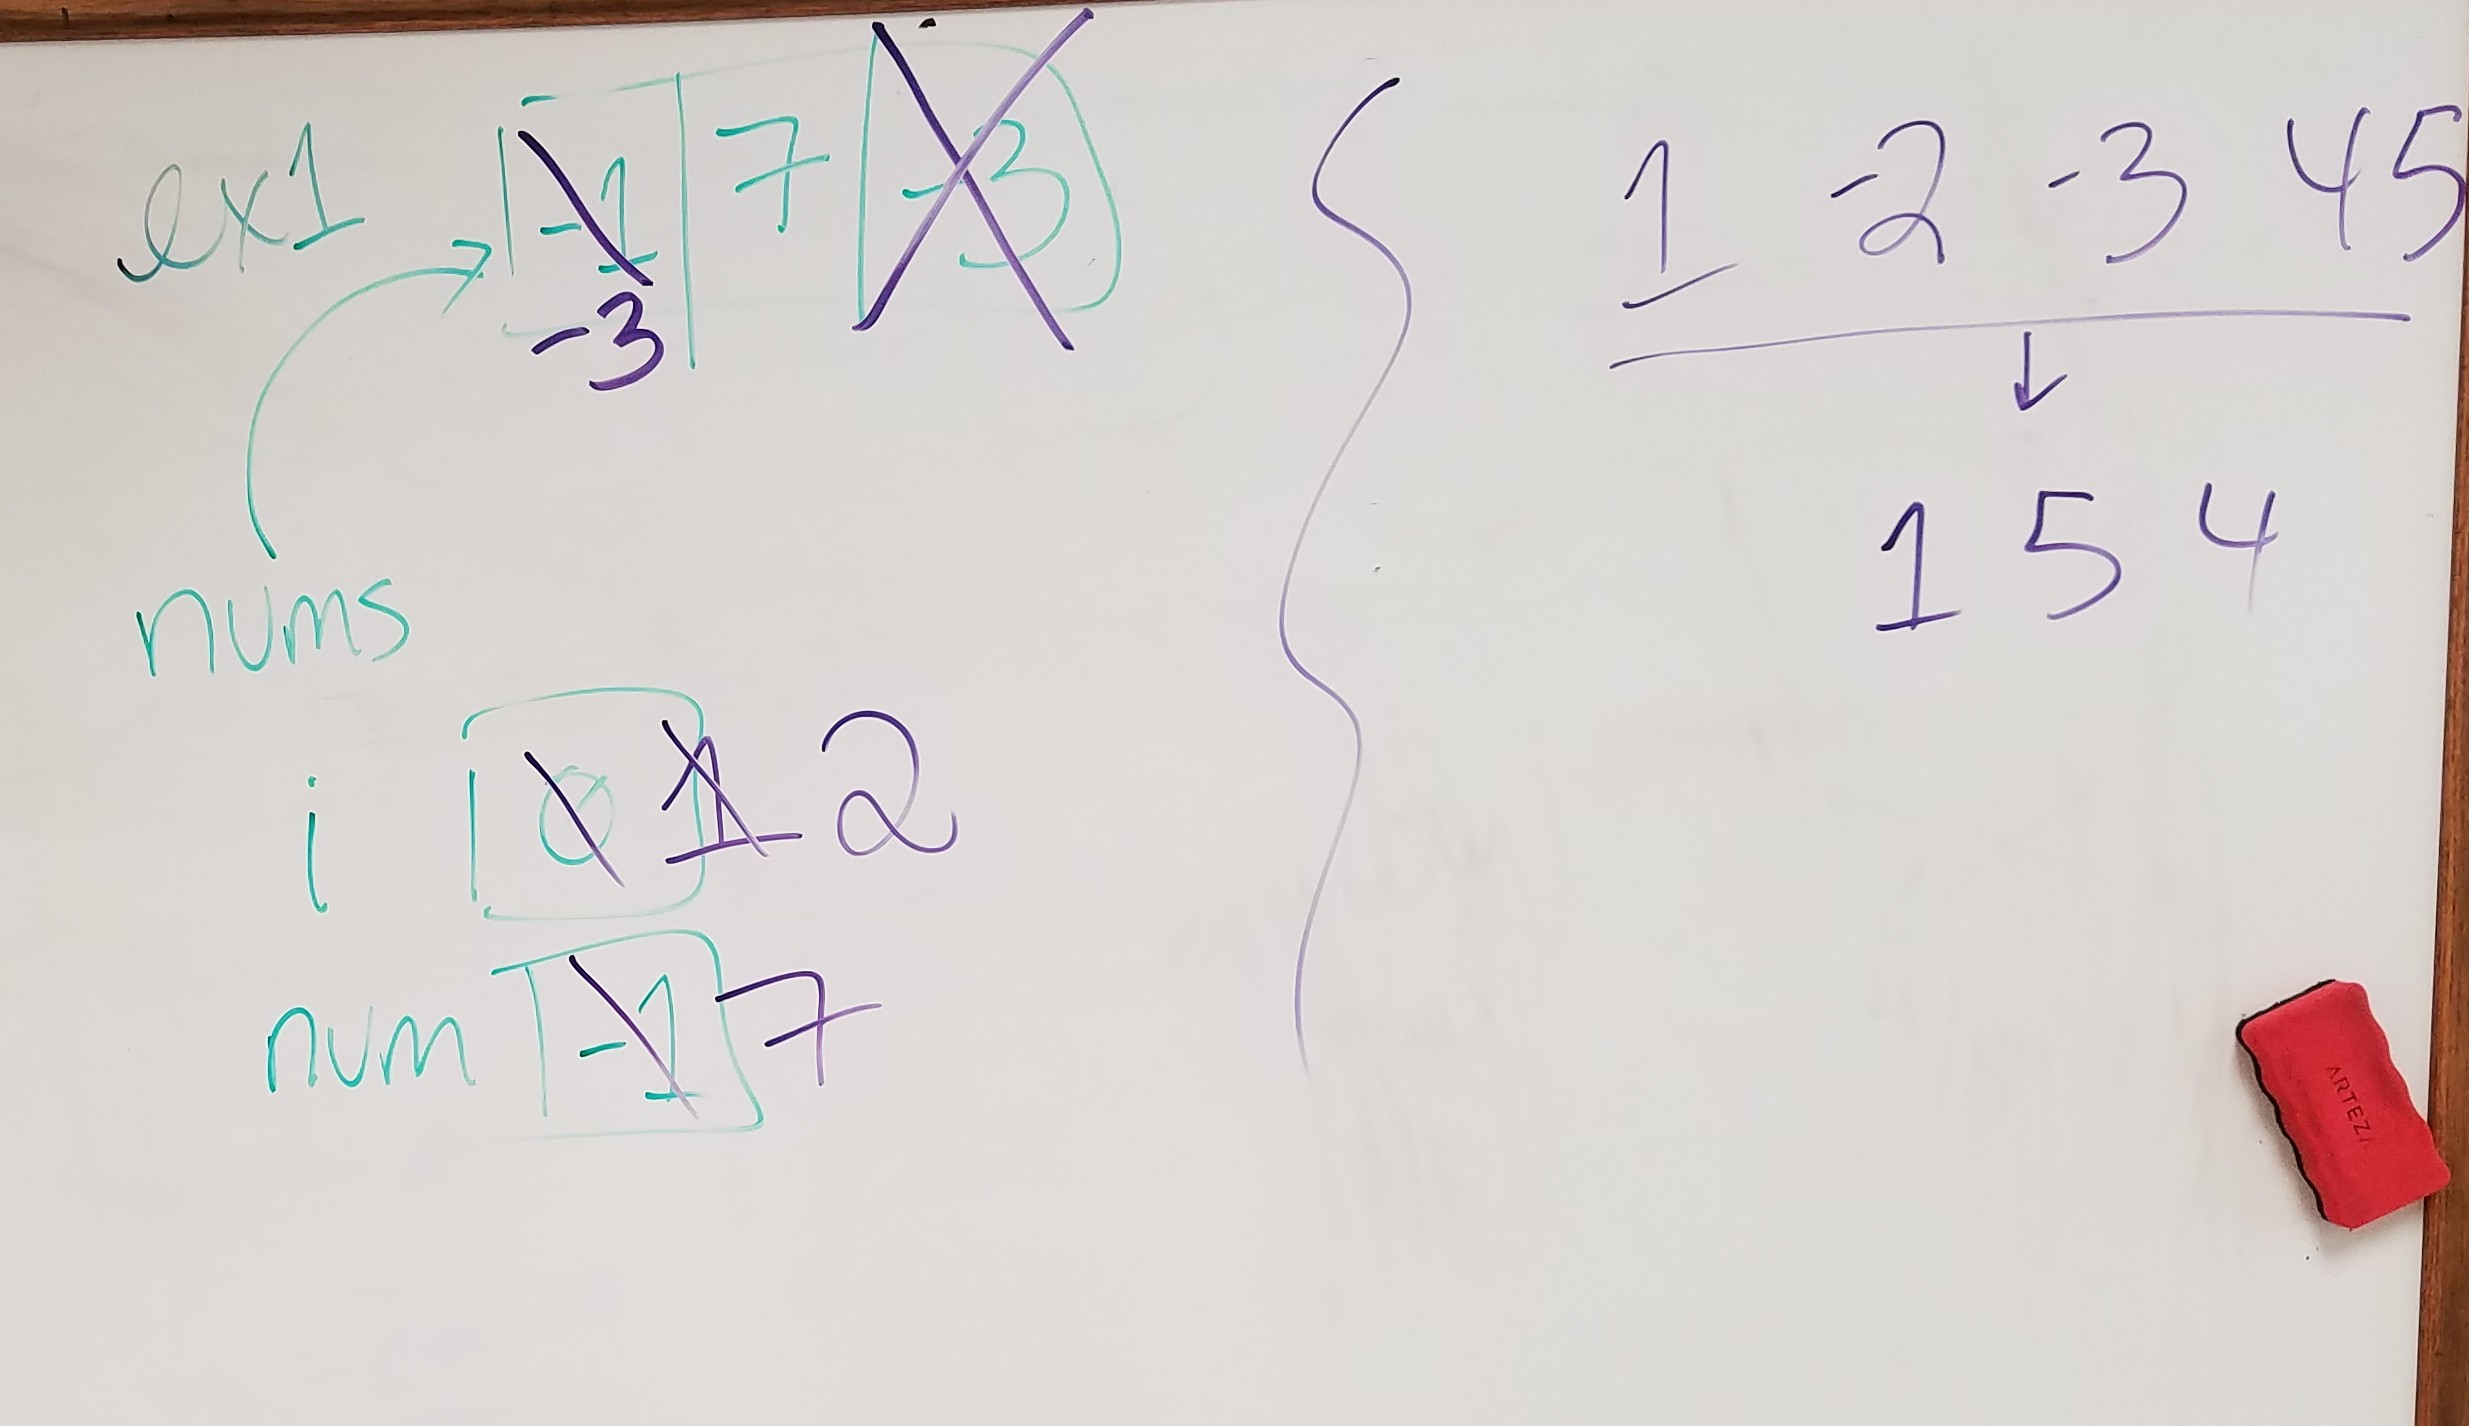 ex1 -1 7 -3
-3
nums
i 0 1 2
num -1 7
1 -2 -3 4 5
1 5 4
ARTEZA